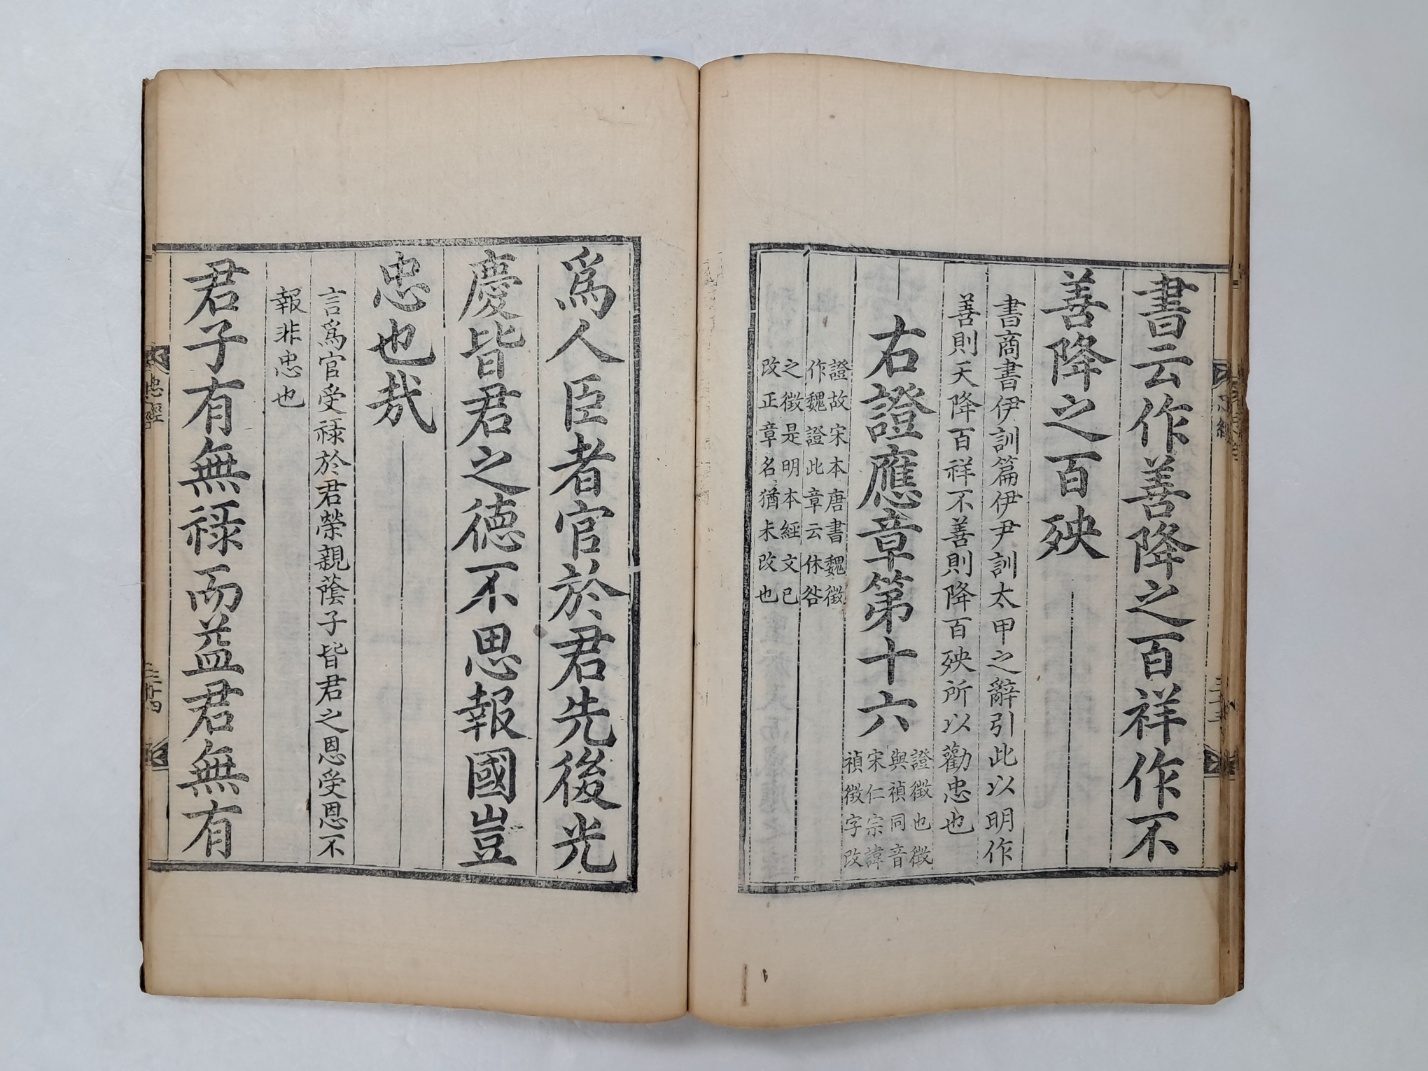 書云作善降之百祥作不
善降之百殃
書商書伊訓篇伊尹訓太甲之辭引此以明作
善則天降百祥不善則降百殃所以勸忠也
右證應章第十六
證徵也徵
與禎同音
宋仁宗諱
禎徵字改
證故宋本唐書魏徵
作魏證此章云休咎
之徵是明本經文已
改正章名猶未改也
爲人臣者官於君先後光
慶皆君之德不思報國豈
忠也哉
言爲官受祿於君榮親蔭子皆君之恩受恩不
報非忠也
君子有無祿而益君無有
忠經